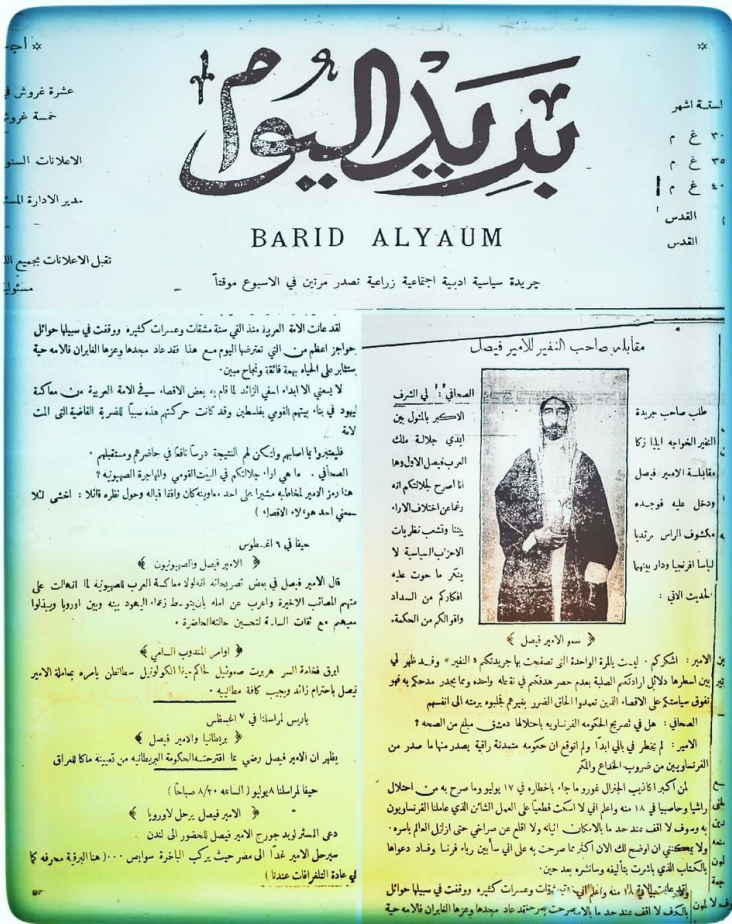 بريد اليوم
BARID ALYAUM
جريدة سياسية ادبية اجتماعية زراعية تصدر مرتين في الاسبوع موقتاً
لستة اشهر
٣٠ غ م
٣٥ غ م
٤٠ غ م
القدس
القدس
عشرة غروش
خمسة غروش
الاعلانات
مدير الادارة
تقبل الاعلانات بجميع
مقابلة صاحب النفير للامير فيصل
طلب صاحب جريدة
النفير الخواجه ايليا زكا
مقابلة الامير فيصل
ودخل عليه فوجده
مكشوف الراس مرتديا
لباسا افرنجيا ودار بينهما
الحديث الاتي :
الصحافي : لي الشرف
الاكبر بالمثول بين
ايدي جلالة ملك
العرب فيصل الاول وها
انا اصرح لجلالتكم انه
رغما عن اختلاف الاراء
بيننا وتشعب نظريات
الاحزاب السياسية لا
ينكر ما حوت عليه
افكاركم من السداد
واقوالكم من الحكمة.
﴿ سمو الامير فيصل ﴾
الامير : اشكركم . ليست بالمرة الواحدة التي تصفحت بها جريدتكم « النفير » وقد ظهر لي
بين اسطرها دلائل ارادتكم الصلبة بعدم حصر هدفكم في نقطة واحدة ومما يجدر مدحكم به فهو
تفوق سياستكم على الاقصاء الذين تعمدوا الحاق الضرر بغيرهم فجلبوه برمته الى انفسهم
الصحافي : هل في تصريح الحكومه الفرنساويه باحتلالها دمشق مبلغ من الصحه ؟
الامير : لم يخطر في بالي ابدًا ولم اتوقع ان حكومه متمدنة راقية يصدر منها ما صدر من
الفرنساويين من ضروب الخداع والمكر
لمن اكبر اكاذيب الجنرال غورو ما جاء باخطاره في ١٧ يوليو وما صرح به من احتلال
راشيا وحاصبيا في ١٨ منه واعلم اني لا اسكت قطعيًا على العمل الشائن الذي عاملنا الفرنساويون
به وسوف لا اقف عند حد ما بالامكان اتيانه ولا اقلع عن صراخي حتى ازلزل العالم باسره.
ولا يمكنني ان اوضح لك الان اكثر مما صرحت به على اني سأبين رياء فرنسا وفساد دعواها
بالكتاب الذي باشرت بتأليفه وسانشره بعد حين .
لقد عانت الامة العربية منذ الفي سنة مشقات وعسرات كثيره ووقفت في سبيلها حوائل
حواجز اعظم من التي تعترضها اليوم مع هذا فقد عاد مجدها وعزها الغابران فالامه حية
ستثابر على الحياه بهمة فائقة ونجاح مبين.
لا يسعني الا ابداء اسفي الزائد لما قام به بعض الاقصاء في الامة العربية من معاكسة
ليهود في بناء بيتهم القومي بفلسطين وقد كانت حركتهم هذه سببًا للضربة القاضية التي المت
لامة
فليعتبروا بما اصابهم ولتكن لهم النتيجة درسًا نافعًا في حاضرهم ومستقبلهم .
الصحافي . ما هي اراء جلالتكم في البيت القومي والمهاجرة الصهيونيه ؟
هنا رمز الامير لمخاطبه مشيرا على احد معاونيه كان واقفا قباله وحول نظره قائلا : اخشى لئلا
سمعني احد هؤلاء الاقصاء )
حيفا في ٦ اغسطوس
﴿ الامير فيصل والصهيونيون ﴾
قال الامير فيصل في بعض تصريحاته انه لولا معاكسة العرب للصهيونية لما انهالت على
متهم المصائب الاخيرة واعرب عن امله بان يتوسط زعماء اليهود بينه وبين اوروبا ويبذلوا
معيهم مع ثقات الساسة لتحسين حالته الحاضرة .
﴿ اوامر المندوب السامي ﴾
ابرق فخامة السر هربرت صموئيل لحاكم حيفا الكولونيل سطانطن يامره بمعاملة الامير
فيصل باحترام زائد ويجيب كافة مطاليبه .
باريس لمراسلنا في ٧ اغسطس
﴿ بريطانيا والامير فيصل ﴾
يظهر ان الامير فيصل رضي بما اقترحته الحكومة البريطانيه من تعيينه ملكا للعراق
حيفا لمراسلنا ٨ يوليو ( الساعة ٨/٢٠ صباحًا )
﴿ الامير فيصل يرحل لاوروبا ﴾
دعى المستر لويد جورج الامير فيصل للحضور الى لندن
سيرحل الامير غدًا الى مصر حيث يركب الباخرة سوابس ٠٠٠( هنا البرقية محرفه كما
في عادة التلغرافات عندنا )